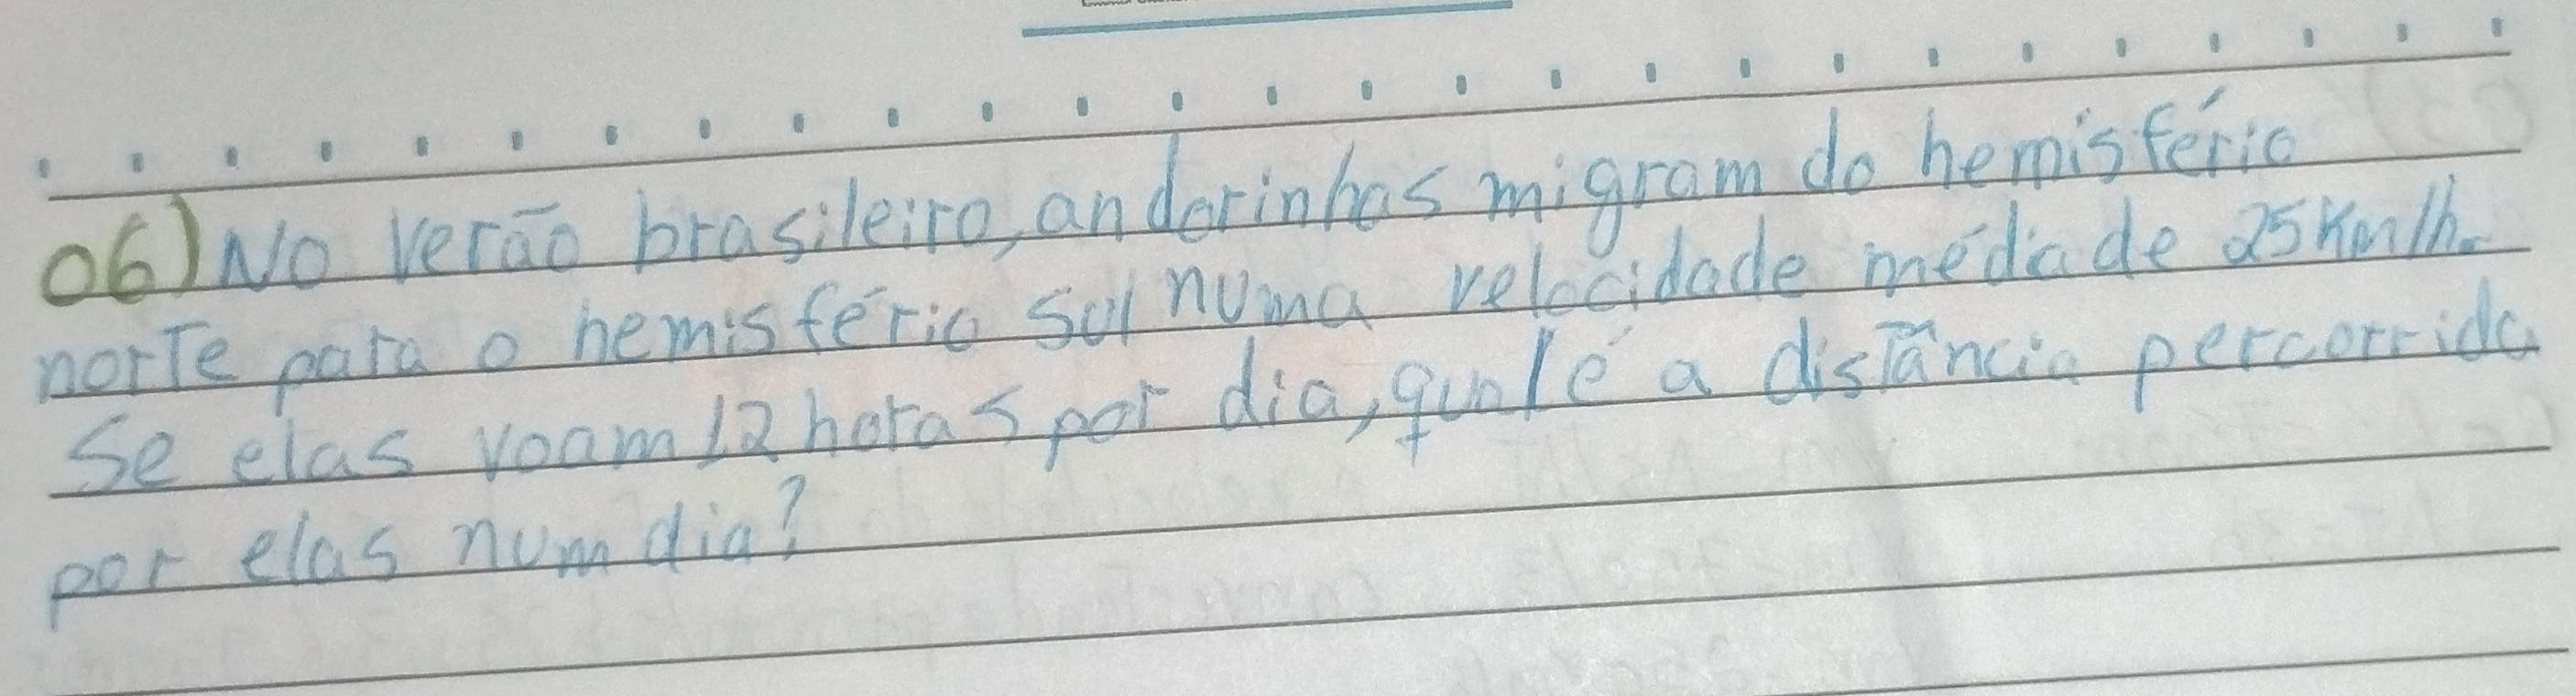 06) No verão brasileiro, andorinhas migram do hemisfério
norte para o hemisfério sul numa velocidade média de 25 km/h.
Se elas voam 12 horas por dia, qual é a distância percorrida
por elas num dia?